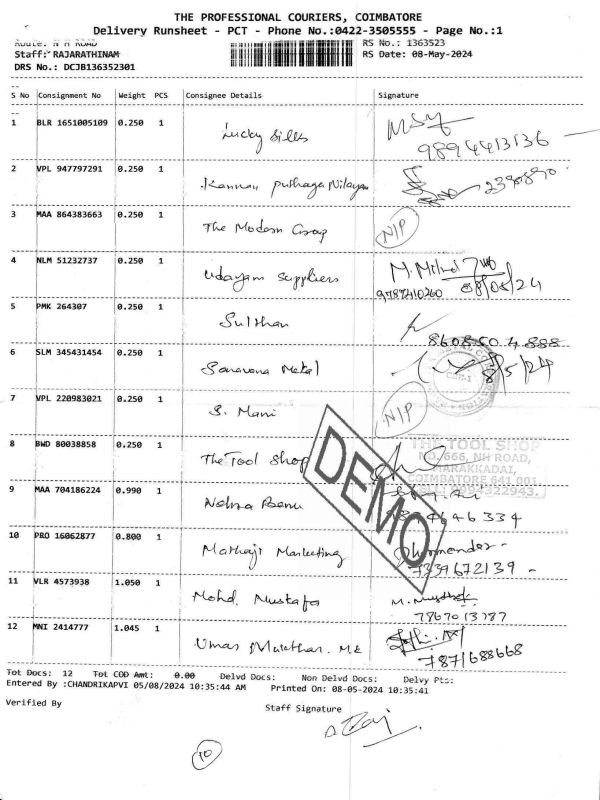 THE PROFESSIONAL COURIERS, COIMBATORE
Delivery Runsheet - PCT - Phone No.:0422-3505555 - Page No.:1
Route: N H ROAD RS No.: 1363523
Staff: RAJARATHINAM RS Date: 08-May-2024
DRS No.: DCJB136352301
S No Consignment No Weight PCS Consignee Details Signature
1 BLR 1651005109 0.250 1 Lucky Silks
9894413136
2 VPL 947797291 0.250 1 Kannan Puthaga Nilayam
3 MAA 864383663 0.250 1 The Modern Group N/P
4 NLM 51232737 0.250 1 Udayam Suppliers
9787410260 08/05/24
5 PMK 264307 0.250 1 Sulthan
860850 4 888
6 SLM 345431454 0.250 1 Saravana Metal 8/5/24
7 VPL 220983021 0.250 1 S. Mani N/P
8 BWD 80038858 0.250 1 The Tool Shop
THE TOOL SHOP
NO. 666, NH ROAD,
MARAKKADAI,
COIMBATORE 641 001.
DEMO
9 MAA 704186224 0.990 1
10 PRO 16062877 0.800 1 Mathaji Marketing Dharmender
7339672139
11 VLR 4573938 1.050 1 Mohd. Mustafa M. Musthafa
7867013787
12 MNI 2414777 1.045 1 Umar Mukthar. M.E
7871688668
Tot Docs: 12 Tot COD Amt: 0.00 Delvd Docs: Non Delvd Docs: Delvy Pts:
Entered By :CHANDRIKAPVI 05/08/2024 10:35:44 AM Printed On: 08-05-2024 10:35:41
Verified By Staff Signature
10